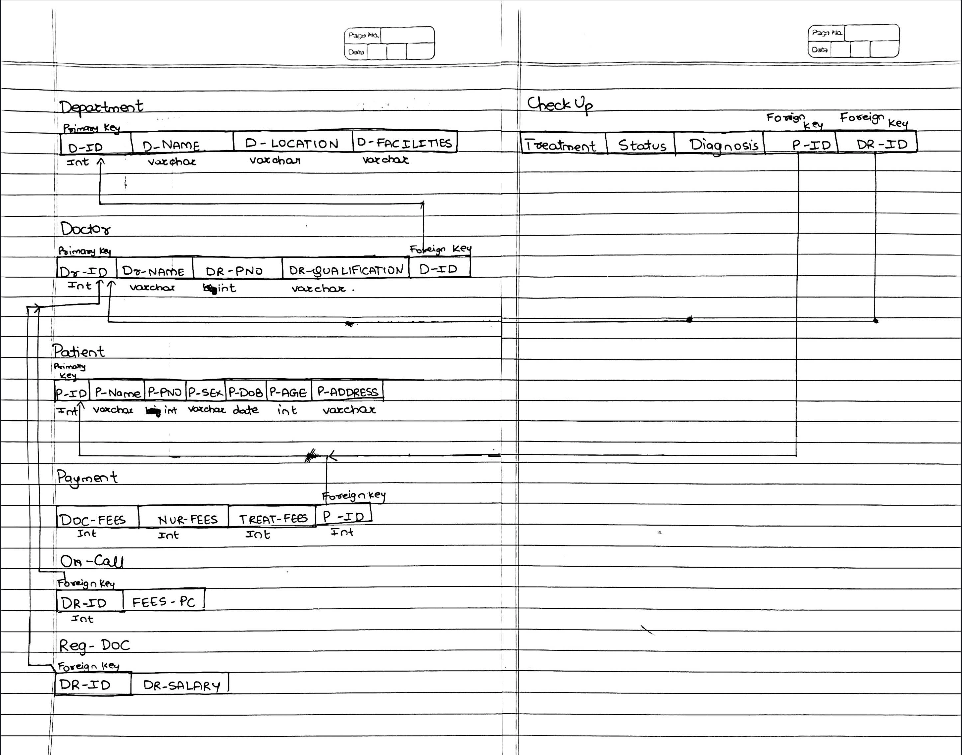 Page No.
Date
Department
Primary Key
D-ID D-NAME D-LOCATION D-FACILITIES
Int varchar varchar varchar
Doctor
Primary Key Foreign Key
Dr-ID Dr-NAME DR-PNO DR-QUALIFICATION D-ID
Int varchar int varchar.
Patient
Primary
Key
P-ID P-Name P-PNO P-SEX P-DOB P-AGE P-ADDRESS
Int varchar int varchar date int varchar
Payment
Foreign key
DOC-FEES NUR-FEES TREAT-FEES P-ID
Int Int Int Int
On-Call
Foreign Key
DR-ID FEES-PC
Int
Reg-DOC
Foreign Key
DR-ID DR-SALARY
Page No.
Date
Check Up
Foreign Key Foreign Key
Treatment Status Diagnosis P-ID DR-ID